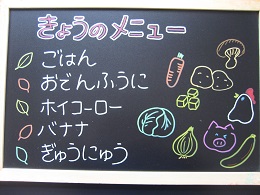 きょうのメニュー
ごはん
おでんふうに
ホイコーロー
バナナ
ぎゅうにゅう